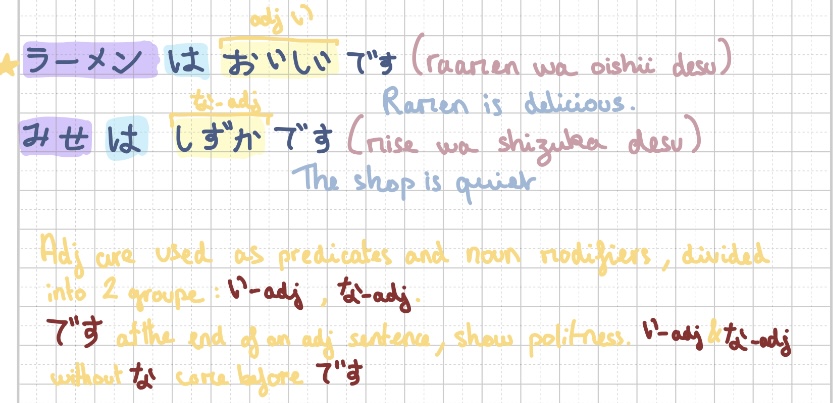 adj い
ラーメン は おいしい です (raamen wa oishii desu)
Ramen is delicious.
な-adj
みせ は しずか です (mise wa shizuka desu)
The shop is quiet
Adj are used as predicates and noun modifiers, divided
into 2 groupe : い-adj , な-adj.
です at the end of an adj sentence, show politness. い-adj & な-adj
without な come before です